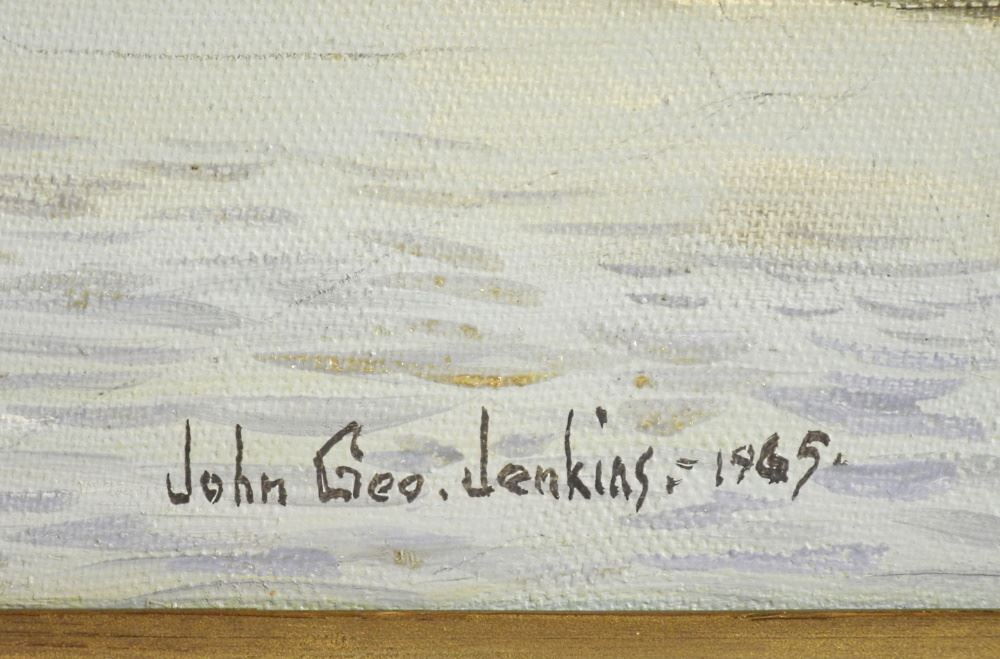 John Geo. Jenkins.- 1965.